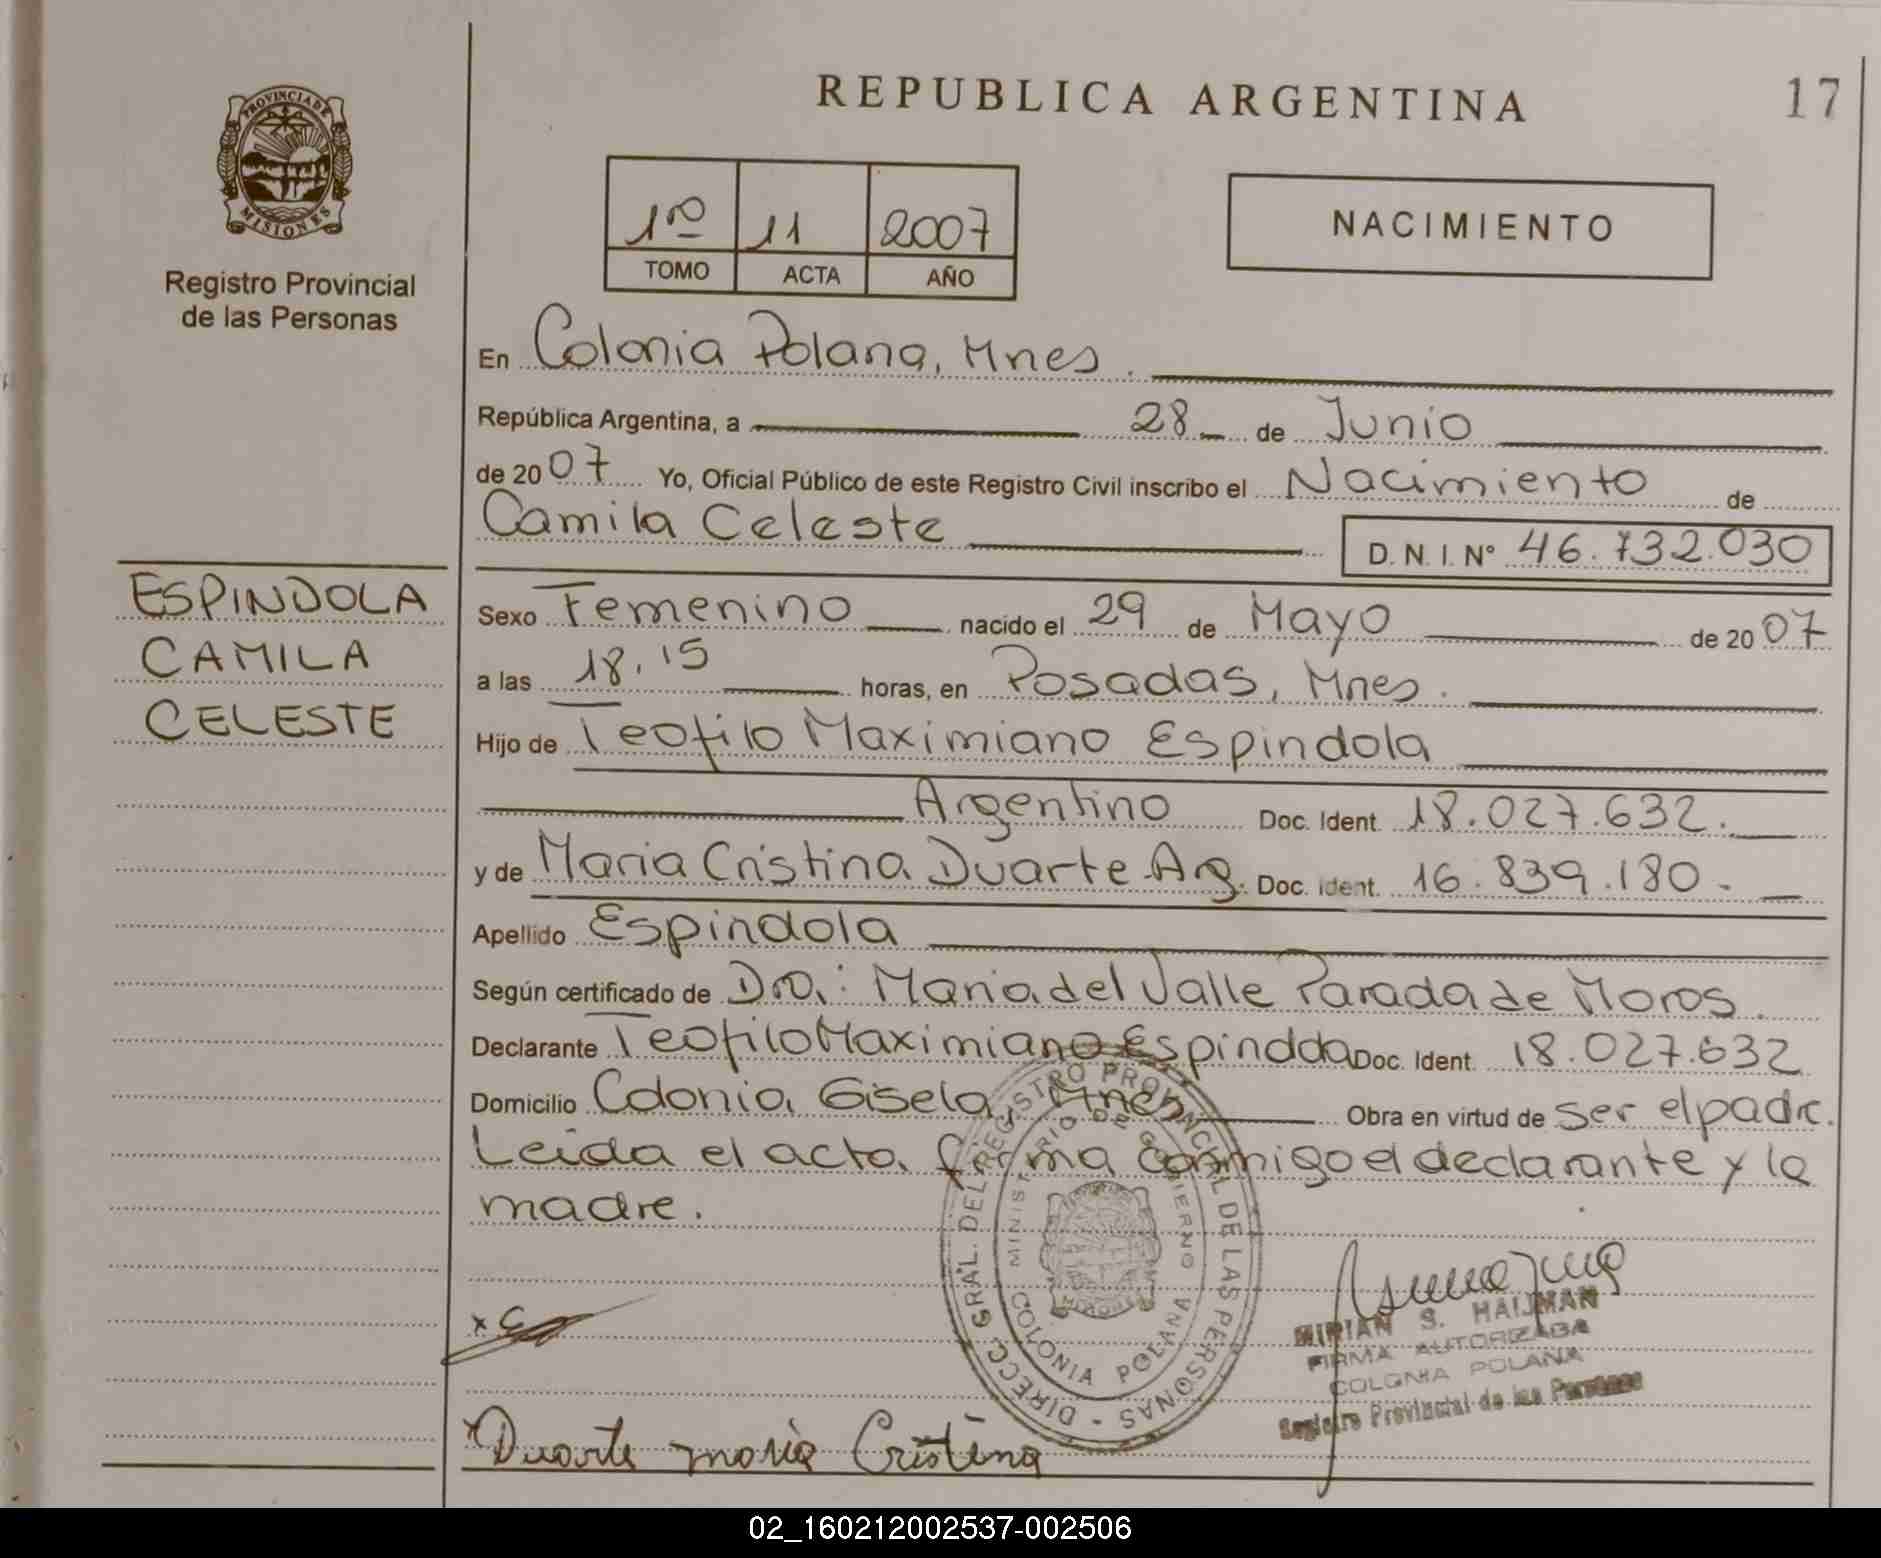 REPUBLICA ARGENTINA
17
PROVINCIA DE
MISIONES
Registro Provincial
de las Personas
1ro 11 2007
TOMO ACTA AÑO
NACIMIENTO
En Colonia Polana, Mnes.
República Argentina, a 28 de Junio
de 2007 Yo, Oficial Público de este Registro Civil inscribo el Nacimiento de
Camila Celeste D. N. I. N° 46.732.030
ESPINDOLA
CAMILA
CELESTE
Sexo Femenino nacido el 29 de Mayo de 2007
a las 18.15 horas, en Posadas, Mnes.
Hijo de Teofilo Maximiano Espindola
Argentino Doc. Ident. 18.027.632.
y de Maria Cristina Duarte Arg. Doc. ident. 16.839.180.
Apellido Espindola
Según certificado de Dra: Maria del Valle Parada de Moros.
Declarante Teofilo Maximiano Espindola Doc. Ident. 18.027.632
Domicilio Colonia Gisela, Mnes Obra en virtud de ser el padre.
Leida el acta firma conmigo el declarante y la
madre.
DIRECC. GRAL. DEL REGISTRO PROVINCIAL DE LAS PERSONAS -
MINISTERIO DE GOBIERNO
COLONIA POLANA
MIRIAN S. HAIJMAN
FIRMA AUTORIZADA
COLONIA POLANA
Registro Provincial de las Personas
Duarte maria Cristina
02_160212002537-002506